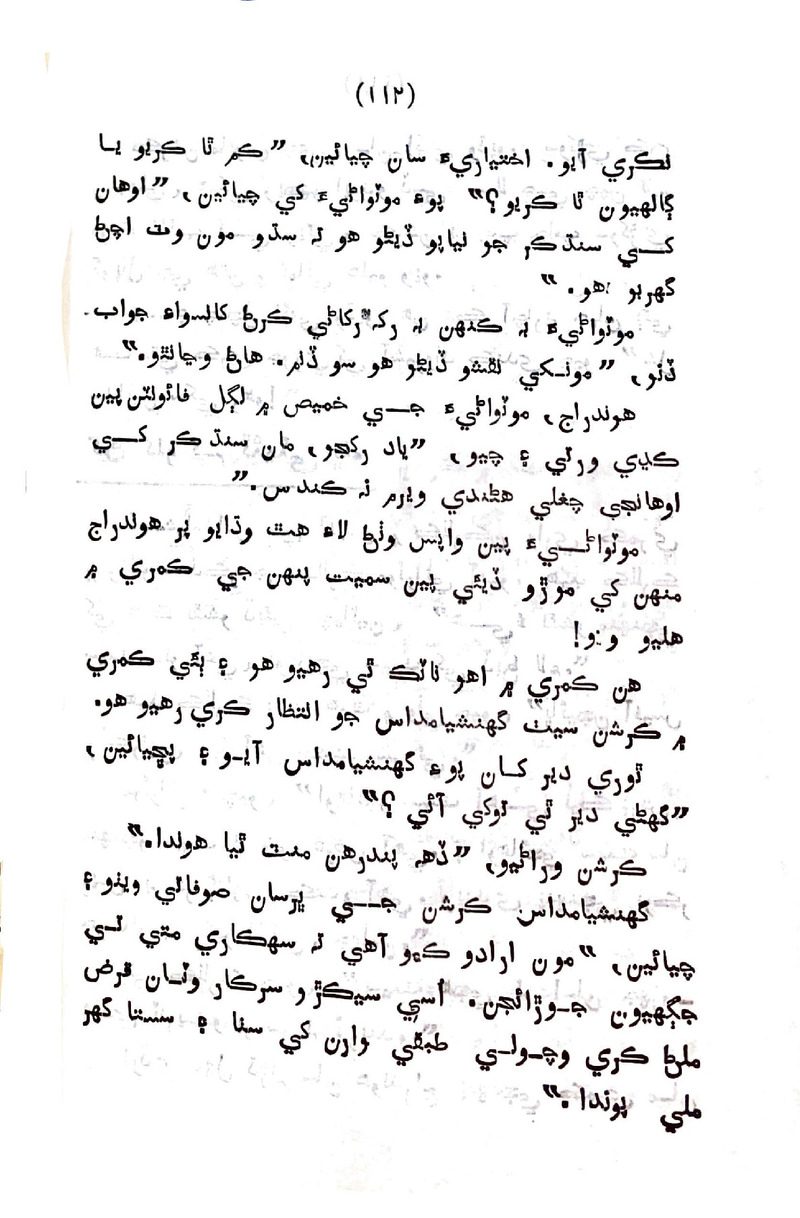 (١١٢)
نڪري آيو. اختياريءَ سان چيائين، ”ڪم ٿا ڪريو يا
ڳالهيون ٿا ڪريو؟“ پوءِ موٽواڻيءَ کي چيائين، ”اوهان
کي سنڌڪر جو نياپو ڏيڻو هو ته سڌو مون وٽ اچڻ
گهربو هو.“
موٽواڻيءَ به ڪنهن به رکہ رکاڻي ڪرڻ کانسواءِ جواب
ڏنو، ”مونکي نقشو ڏيڻو هو سو ڏنم. هاڻ وڃانٿو.“
هوندراج، موٽواڻيءَ جي خميص ۾ لڳل فائونٽن پين
ڪڍي ورتي ۽ چيو، ”ياد رکجو، مان سنڌڪر کي
اوهانجي چغلي هڻندي ويرم نہ ڪندس.“
موٽواڻيءَ پين واپس وٺڻ لاءِ هٿ وڌايو پر هوندراج
منهن کي موڙو ڏيئي پين سميت پنهن جي ڪمري ۾
هليو ويو!
هن ڪمري ۾ اهو ناٽڪ ٿي رهيو هو ۽ ٻئي ڪمري
۾ ڪرشن سيٺ گهنشيامداس جو انتظار ڪري رهيو هو.
ٿوري دير کان پوءِ گهنشيامداس آيو ۽ پڇيائين،
”گهڻي دير ٿي توکي آئي؟“
ڪرشن وراڻيو، ”ڏهہ پندرهن منٽ ٿيا هوندا.“
گهنشيامداس ڪرشن جي ڀرسان صوفائي ويٺو ۽
چيائين، ”مون ارادو ڪيو آهي تہ سهڪاري متي تي
جڳهيون جوڙائجن. اسي سيڪڙو سرڪار وٽان قرض
ملڻ ڪري وچولي طبقي وارن کي سٺا ۽ سستا گهر
ملي پوندا.“